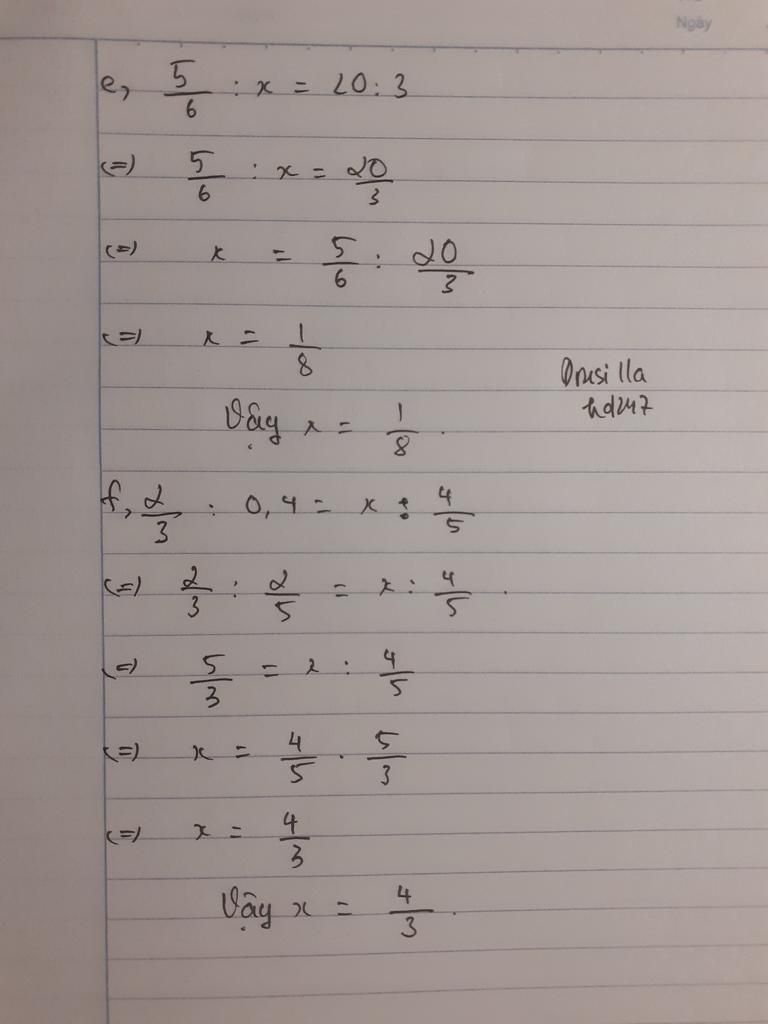 Ngày
e, 5/6 : x = 20 : 3
(=) 5/6 : x = 20/3
(=) x = 5/6 : 20/3
(=) x = 1/8
Drusilla
hd247
Vậy x = 1/8 .
f, 2/3 : 0,4 = x : 4/5
(=) 2/3 : 2/5 = x : 4/5 .
(=) 5/3 = x : 4/5
(=) x = 4/5 . 5/3
(=) x = 4/3
Vậy x = 4/3 .